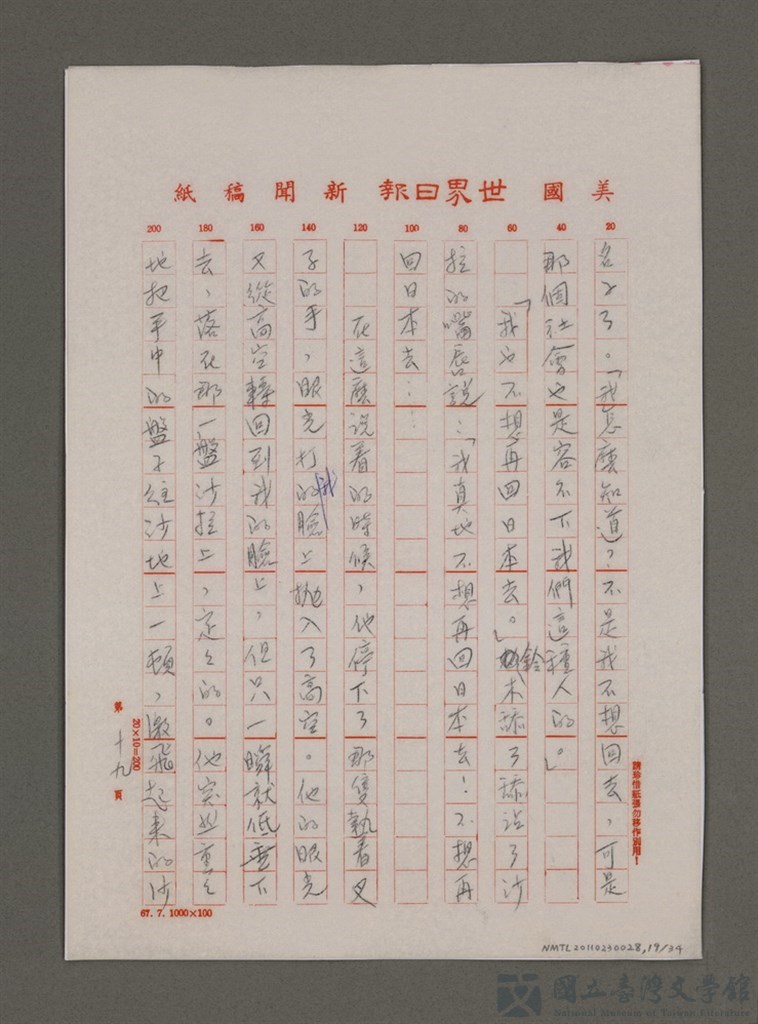 美國世界日報新聞稿紙
20 40 60 80 100 120 140 160 180 200
名子了。「我怎麼知道?不是我不想回去,可是
那個社會也是容不下我們這種人的。」
「我也不想再回日本去。」鈴木舔了舔沾了沙
拉的嘴唇說:「我真地不想再回日本去!不想再
回日本去……
在這麼說着的時候,他停下了那隻執着叉
子的手,眼光打我的臉上拋入了高空。他的眼光
又從高空轉回到我的臉上,但只一瞬就低垂下
去,落在那一盤沙拉上,定定的。他突然重重
地把手中的盤子往沙地上一頓,激飛起來的沙
請珍惜紙張勿移作別用!
第十九頁
20×10=200
67.7.1000×100
NMTL20110230028,19/34
國立臺灣文學館
National Museum of Taiwan Literature